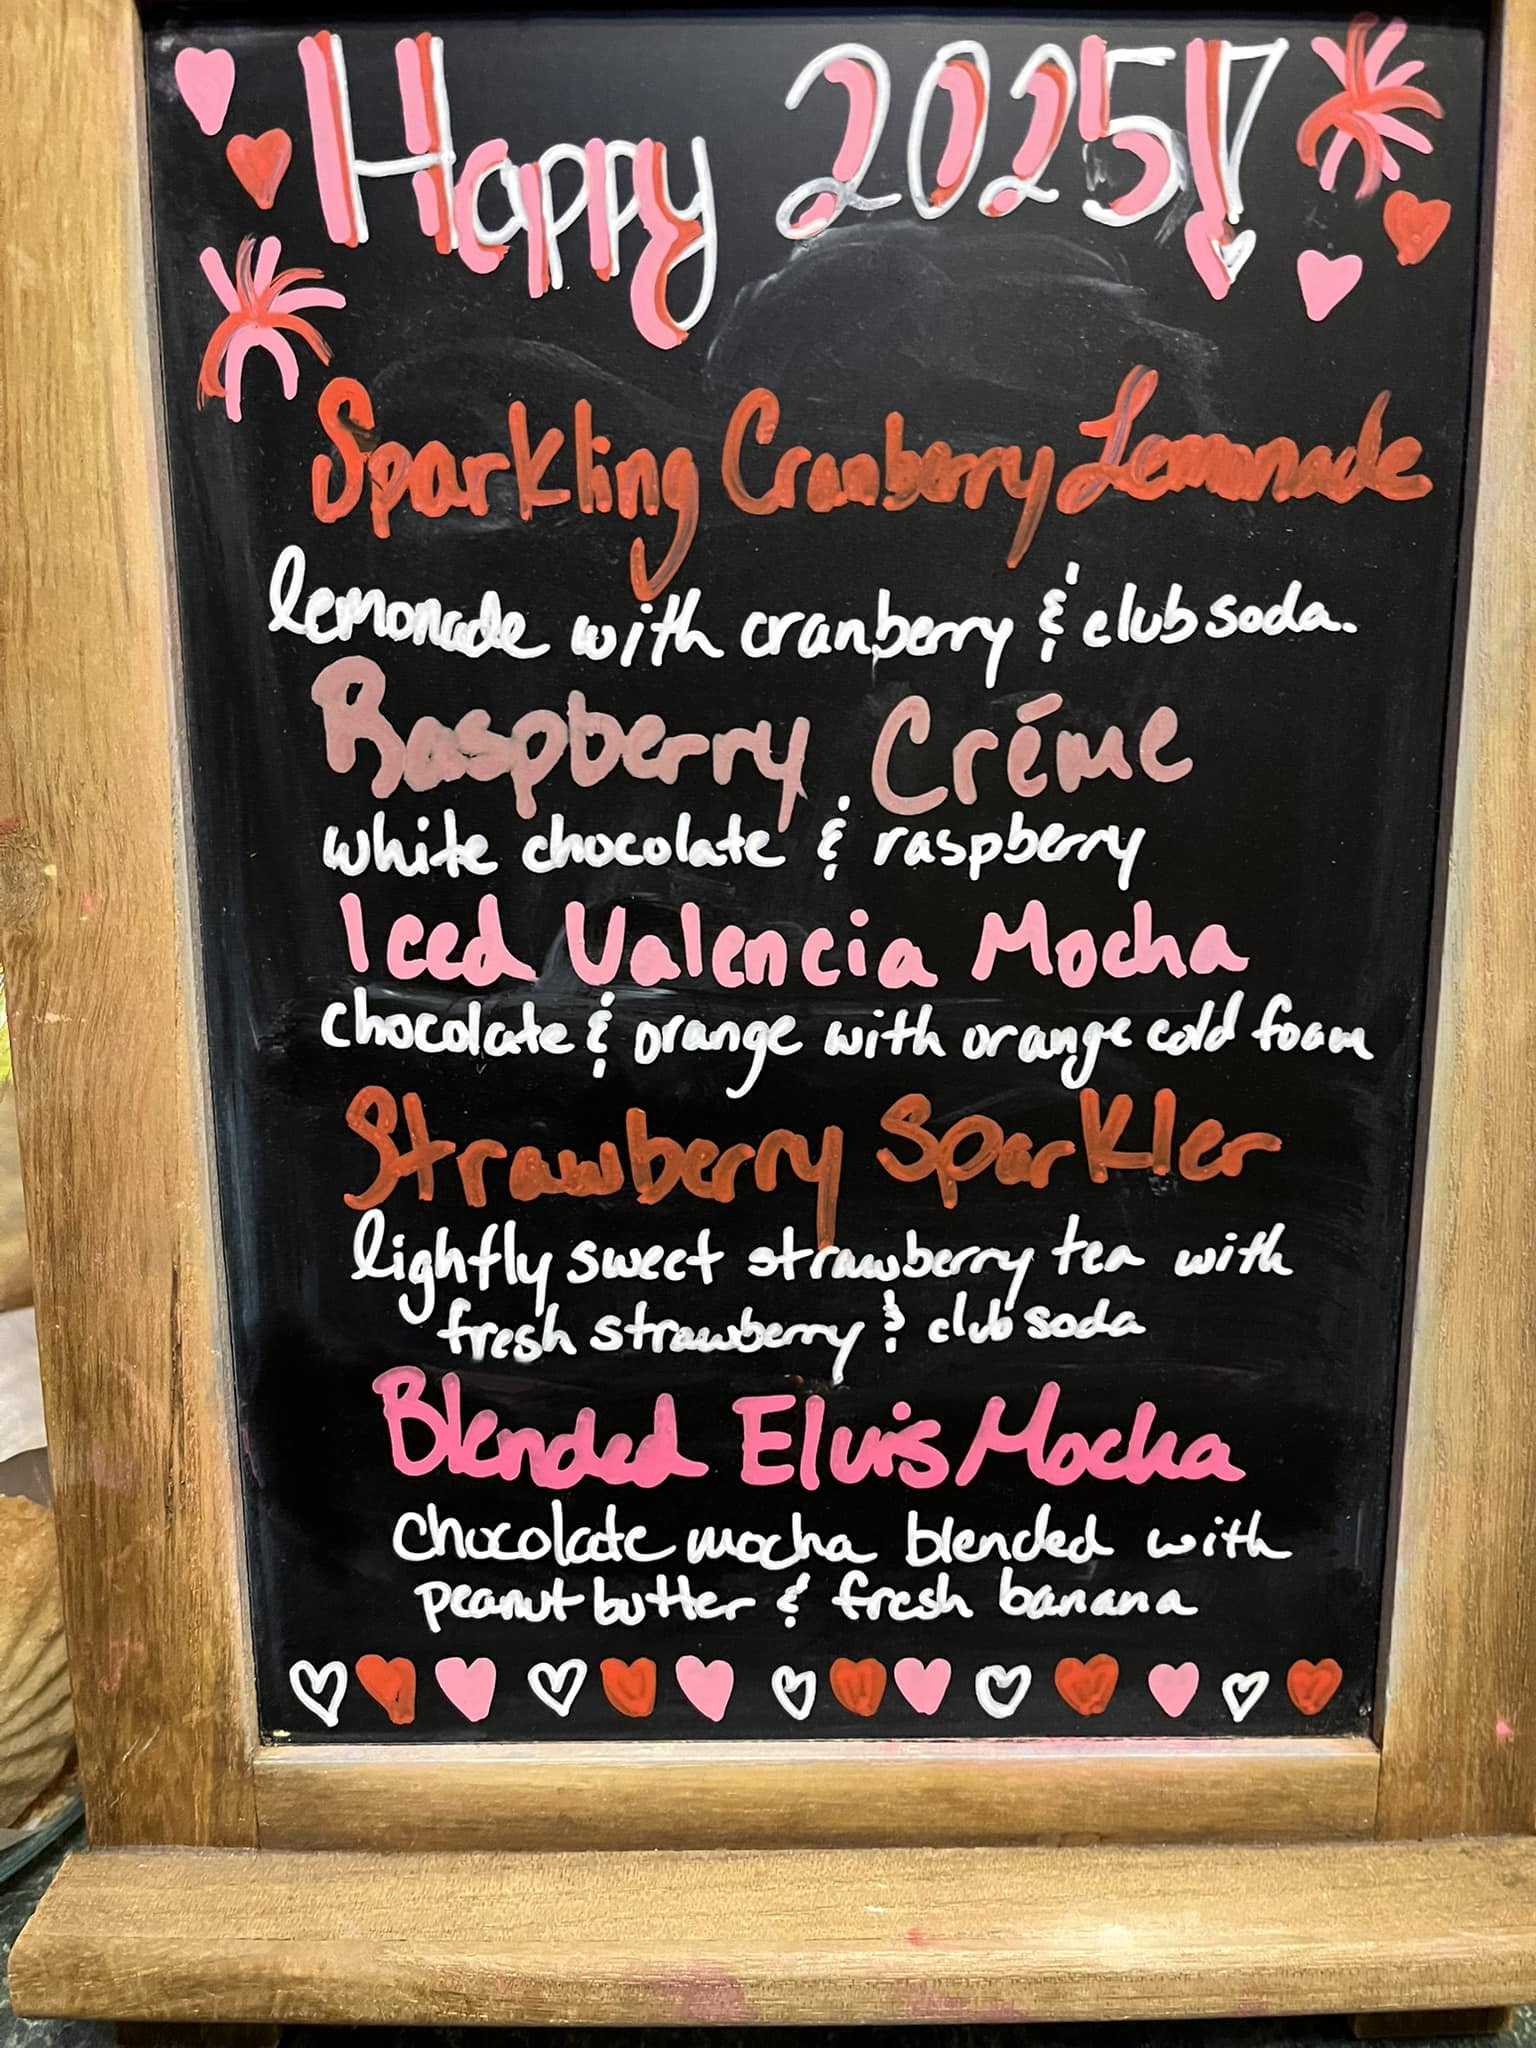 Happy 2025!
Sparkling Cranberry Lemonade
lemonade with cranberry & club soda.
Raspberry Créme
white chocolate & raspberry
Iced Valencia Mocha
chocolate & orange with orange cold foam
Strawberry Sparkler
lightly sweet strawberry tea with
fresh strawberry & club soda
Blended Elvis Mocha
chocolate mocha blended with
peanut butter & fresh banana